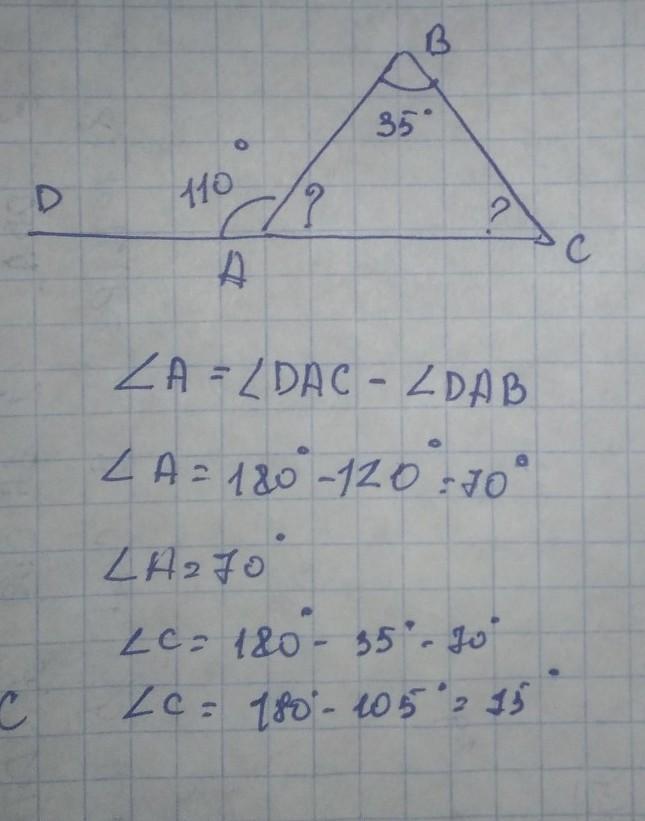 B
35°
110°
D
?
?
A
C
∠A = ∠DAC - ∠DAB
∠A = 180° - 120° = 70°
∠A = 70°
∠C = 180° - 35° - 70°
C
∠C = 180° - 105° = 75°